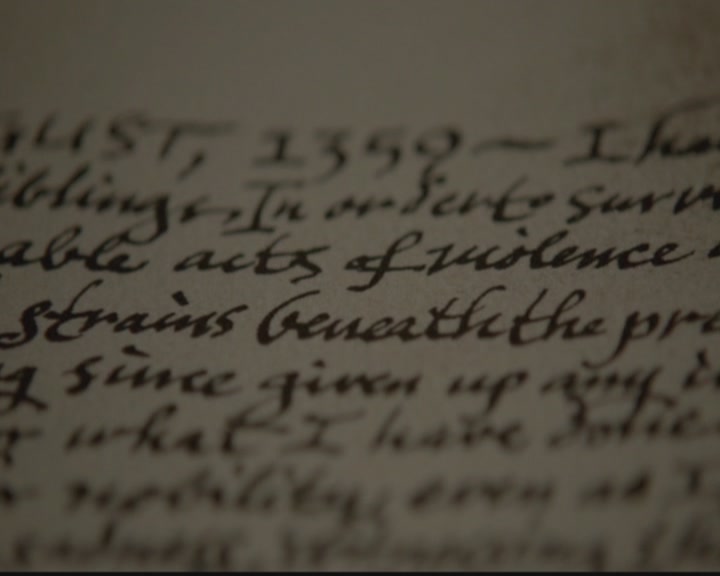 GUST, 1359 — I ha
iblings, In order to surv
able acts of violence
strains beneath the pro
g since given up any i
what I have done
nobility, even as I